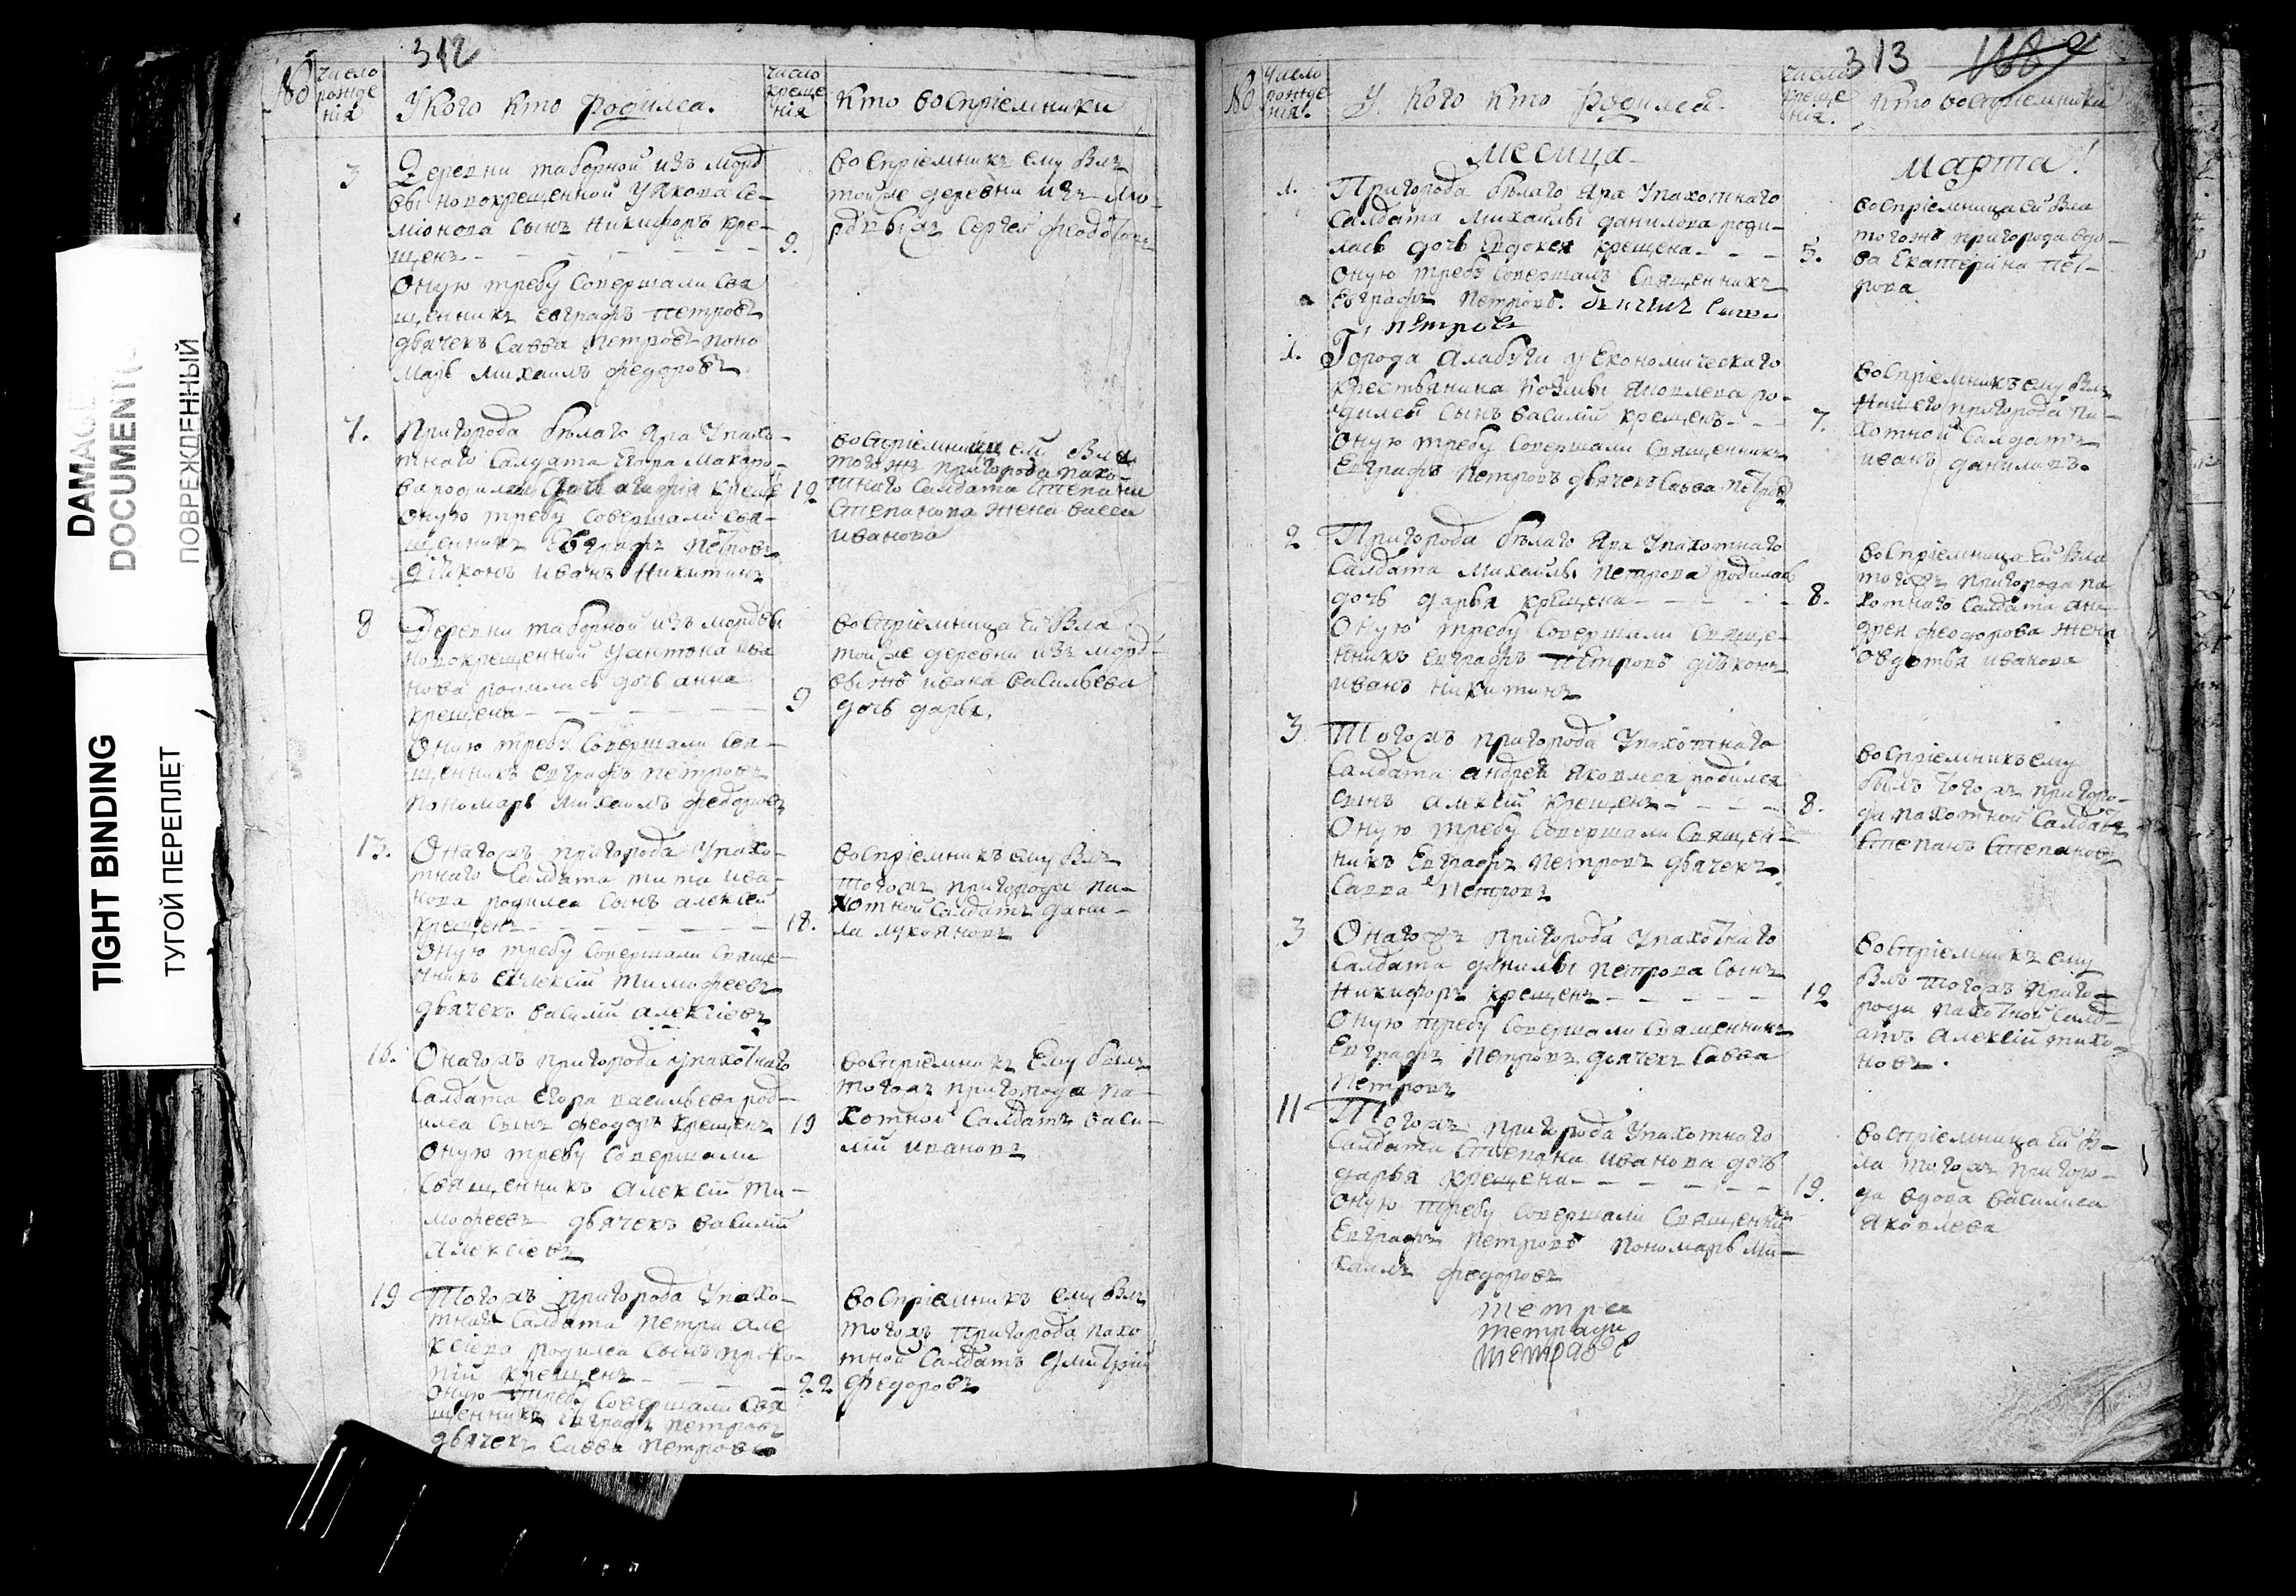 DAMAG
DOCUMENT
ПОВРЕЖДЕННЫЙ
TIGHT BINDING
ТУГОЙ ПЕРЕПЛЕТ
312
№
число рожде нія
У кого кто родился.
число креще нія
Кто восприемники
3
Деревни таборной изъ морд
вы новокрещенной У Якова Се-
міонова сынъ Никифоръ кре-
щенъ
9.
Оную требу совершали свя
щенникъ Евграфъ Петровъ
дьячекъ Савва Петровъ поно
марь Михаилъ Федоровъ
восприемникъ ему былъ
той же деревни изъ мо
рдвы Сергей Федотовъ
7.
Пригорода белаго Яра У пахо-
тнаго Салдата Егора Макаро-
ва родилась дочь креще
12
Оную требу совершали свя-
щенникъ Евграфъ Петровъ
дійконъ Иванъ Никитинъ
восприемница ей была
тогожъ пригорода пахо-
тнаго Салдата Степана
Степанова жена Васса
Иванова
8
Деревни таборной изъ мордвы
новокрещенной У Антона Ива
нова родилась дочь Анна
крещена
9
Оную требу совершали свя-
щенникъ Евграфъ Петровъ
пономарь Михаилъ Федоровъ
восприемница ей была
той же деревни изъ морд-
вы Ивана Васильева
дочь Дарья.
13.
Онагожъ пригорода У пахо-
тнаго Салдата Тита Ива-
нова родился сынъ Алексей
крещенъ
18.
Оную требу совершали свяще-
нникъ Алексій Тимофеевъ
дьячекъ Василій Алексіевъ
восприемникъ ему былъ
тогожъ пригорода па-
хотной Салдатъ Дани-
ла Лукояновъ
16.
Онагожъ пригорода У пахотнаго
Салдата Егора Васильева род-
ился сынъ Феодоръ крещенъ
19
Оную требу совершали
священникъ Алексій Ти-
мофеевъ дьячекъ Василій
Алексіевъ
восприемникъ ему былъ
тогожъ пригорода па-
хотной Салдатъ Васи-
лій Ивановъ
19
Тогожъ пригорода У пахо-
тнаго Салдата Петра Але
ксіева родился сынъ Проко-
пій крещенъ
22
Оную требу совершали свя
щенникъ Евграфъ Петровъ
дьячекъ Савва Петровъ
восприемникъ ему былъ
тогожъ пригорода пахо
тной Салдатъ Дмитрій
Федоровъ
313
№
число рожде нія.
У кого кто родился.
число креще нія.
Кто восприемники
месица
марта!
1.
Пригорода белаго Яра У пахотнаго
Салдата Михаилы Данилова роди-
лась дочь Евдокея крещена
5.
Оную требу совершалъ священникъ
Евграфъ Петровъ.
Петровъ
восприемница ей была
тогожъ пригорода вдо-
ва Екатерина Пет-
рова
1.
Города Алабуги у Економическаго
крестьянина Козмы Яковлева ро-
дился сынъ Василій крещенъ
7.
Оную требу совершали священникъ
Евграфъ Петровъ дьячекъ Савва Петровъ
восприемникъ ему былъ
нашего пригорода па-
хотной Салдатъ
Иванъ Даниловъ.
2
Пригорода белаго Яра У пахотнаго
Салдата Михаилы Петрова родилась
дочь Дарья крещена
8.
Оную требу совершали свяще-
нникъ Евграфъ Петровъ діяконъ
Иванъ Никитинъ
восприемница ей была
тогожъ пригорода па-
хотнаго Салдата Ан-
дрея Феодорова жена
Овдотья Иванова
3
Тогожъ пригорода У пахотнаго
Салдата Андрей Яковлева родился
сынъ Алексій крещенъ
8.
Оную требу совершали священ-
никъ Евграфъ Петровъ дьячекъ
Савва Петровъ
восприемникъ ему
былъ тогожъ пригоро-
да пахотной Салдатъ
Степанъ Степановъ
3
Онагожъ пригорода У пахотнаго
Салдата Данилы Петрова сынъ
Никифоръ крещенъ
12
Оную требу совершали священникъ
Евграфъ Петровъ дьячекъ Савва
Петровъ
восприемникъ ему
былъ тогожъ приго-
рода пахотной Салд-
атъ Алексій Тихо-
новъ.
11
Тогожъ пригорода У пахотнаго
Салдата Степана Иванова дочь
Дарья крещена
19.
Оную требу совершали священникъ
Евграфъ Петровъ пономарь Ми-
хаилъ Федоровъ
восприемница ей бы-
ла тогожъ пригоро-
да вдова Василиса
Яковлева
тетра
тетради